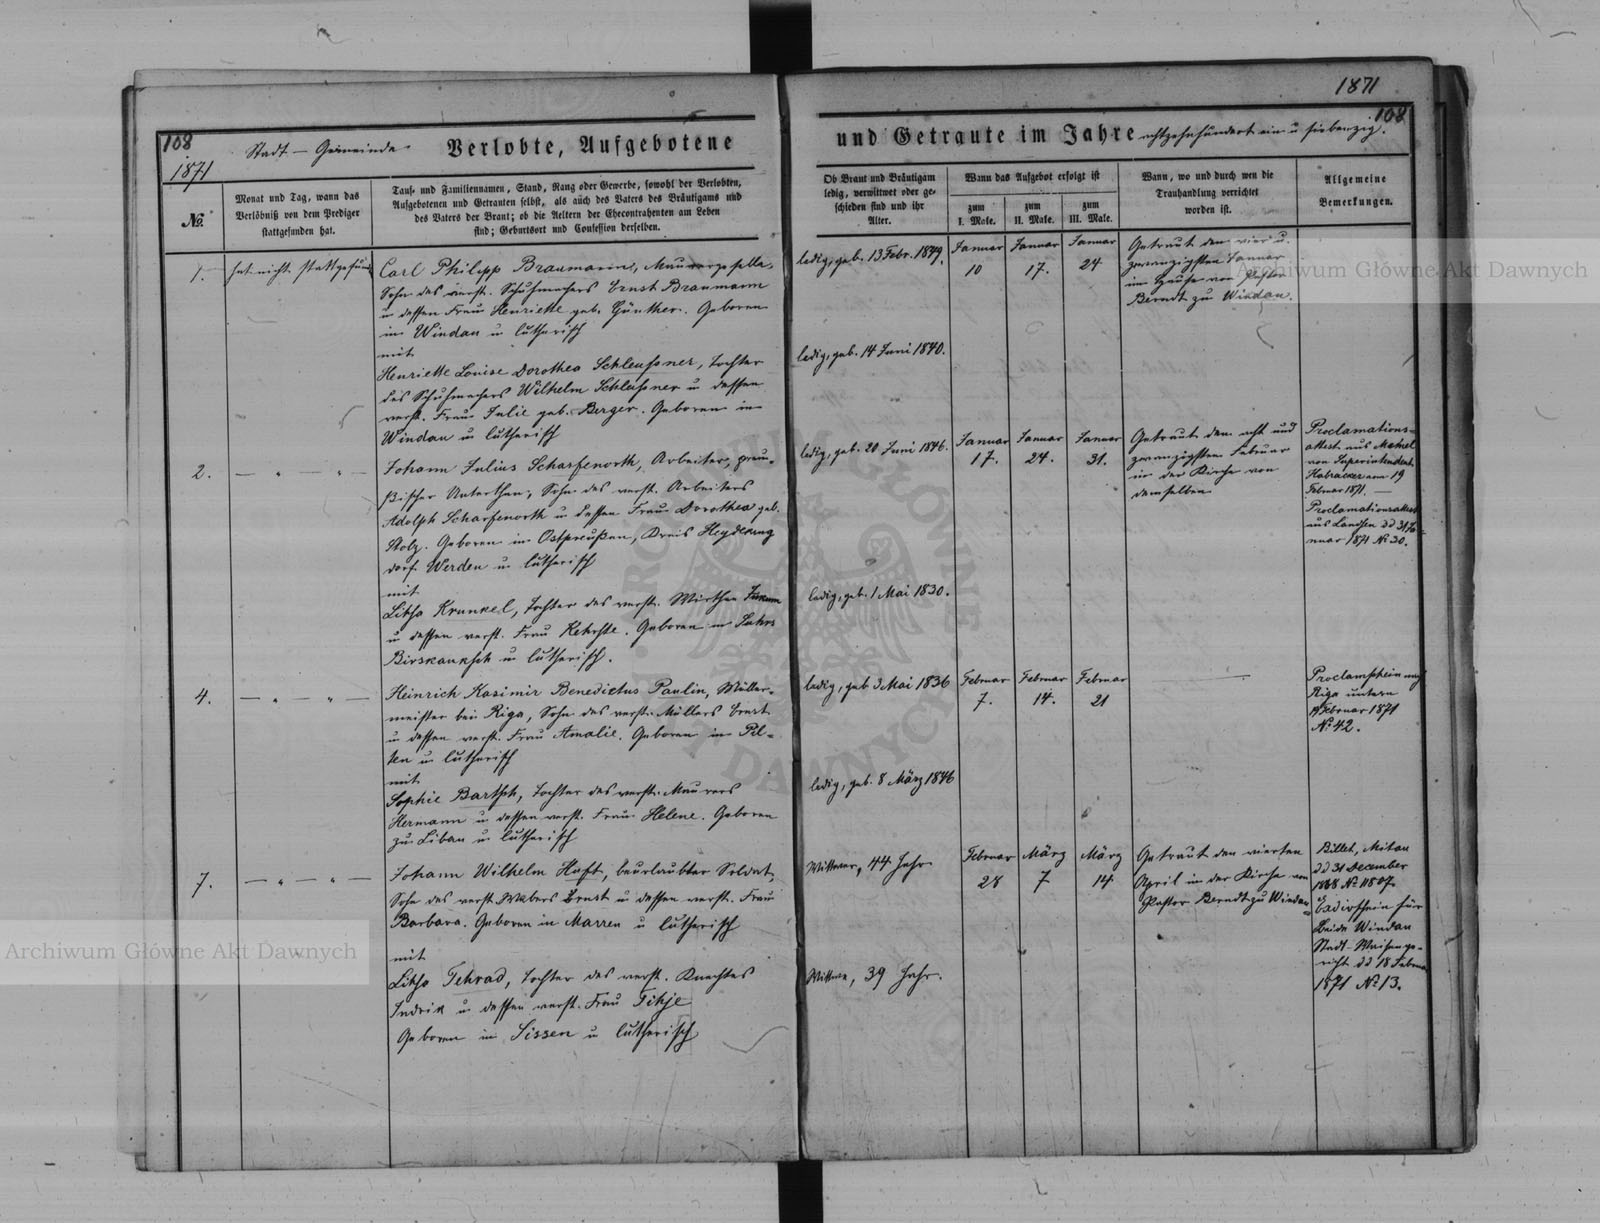 1871
108
108
1871
Stadt – Gemeinde
Verlobte, Aufgebotene
und Getraute im Jahre achtzehnhundert ein u siebenzig.
№
Monat und Tag, wann das
Verlöbniß von dem Prediger
stattgefunden hat.
Tauf- und Familiennamen, Stand, Rang oder Gewerbe, sowohl der Verlobten,
Aufgebotenen und Getrauten selbst, als auch des Vaters des Bräutigams und
des Vaters der Braut; ob die Aeltern der Ehecontrahenten am Leben
sind; Geburtsort und Confession derselben.
Ob Braut und Bräutigam
ledig, verwittwet oder ge-
schieden sind und ihr
Alter.
Wann das Aufgebot erfolgt ist
zum
I. Male.
zum
II. Male.
zum
III. Male.
Wann, wo und durch wen die
Trauhandlung verrichtet
worden ist.
Allgemeine
Bemerkungen.
1.
hat nicht stattgefund.
Carl Philipp Braumann, Maurergeselle,
Sohn des verst. Schuhmachers Ernst Braumann
u dessen Frau Henriette geb. Günther. Geboren
in Windau u lutherisch
mit
Henriette Louise Dorothea Schleussner, Tochter
des Schuhmachers Wilhelm Schleussner u dessen
verst. Frau Julie geb. Berger. Geboren in
Windau u lutherisch
ledig, geb. 13 Febr. 1849.
ledig, geb. 14 Juni 1840.
Januar
10
Januar
17.
Januar
24
Getraut den vier u.
zwanzigsten Januar
im Hause von Pastor
Berndt zu Windau.
2.
— " — " —
Johann Julius Scharfenorth, Arbeiter, preu-
ßischer Unterthan, Sohn des verst. Arbeiters
Adolph Scharfenorth u dessen Frau Dorothea geb.
Stolz. Geboren in Ostpreußen, Kreis Heydekrug
dorf Werden u lutherisch
mit
Lihso Krunkel, Tochter des verst. Wirthen
u dessen verst. Frau Kehrste. Geboren in
u lutherisch.
ledig, geb. 20 Juni 1846.
ledig, geb. 1 Mai 1830.
Januar
17.
Januar
24.
Januar
31.
Getraut den acht und
zwanzigsten Februar
in der Kirche von
demselben
Proclamations-
attest aus Memel
von Superintendent
Habrucker vom 19
Februar 1871. —
Proclamationsattest
aus dd 31 Ja-
nuar 1871 № 30.
4.
— " — " —
Heinrich Kasimir Benedictus Paulin, Müller-
meister bei Riga, Sohn des verst. Müllers Ernst
u dessen verst. Frau Amalie. Geboren in Pil-
ten u lutherisch
mit
Sophie Bartsch, Tochter des verst. Maurers
Hermann u dessen verst. Frau Helene. Geboren
zu Libau u lutherisch
ledig, geb 3 Mai 1836
ledig, geb. 8 März 1846
Februar
7.
Februar
14.
Februar
21
—
Proclamschein nach
Riga unterm
Februar 1871
№ 42.
7.
— " — " —
Johann Wilhelm Haft, beurlaubter Soldat,
Sohn des verst. Webers Ernst u dessen verst. Frau
Barbara. Geboren in Marren u lutherisch
mit
Lihso Tehrad, Tochter des verst. Knechtes
Indrik u dessen verst. Frau Tihje
Geboren in Sissen u lutherisch
Wittwer, 44 Jahr
Wittwe, 39 Jahr.
Februar
28
März
7
März
14
Getraut den vierten
April in der Kirche von
Pastor Berndt zu Windau
Billet, Mitau
dd 31 December
1868 № 11807.
für
beide Windau
Stadt-Waisenge-
richt dd 18 Februar
1871 № 13.
Archiwum Główne Akt Dawnych
Archiwum Główne Akt Dawnych